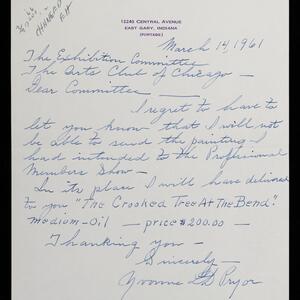 12240 CENTRAL AVENUE
EAST GARY, INDIANA
(PORTAGE)
March 14, 1961
The Exhibition Committee
The Arts Club of Chicago —
Dear Committee —
I regret to have to
let you know that I will not
be able to send the painting I
had intended to the Professional
Members Show —
In its place I will have delivered
to you "The Crooked Tree At The Bend".
medium - Oil — price $200.00 —
Thanking you —
Sincerely —
Yvonne Pryor